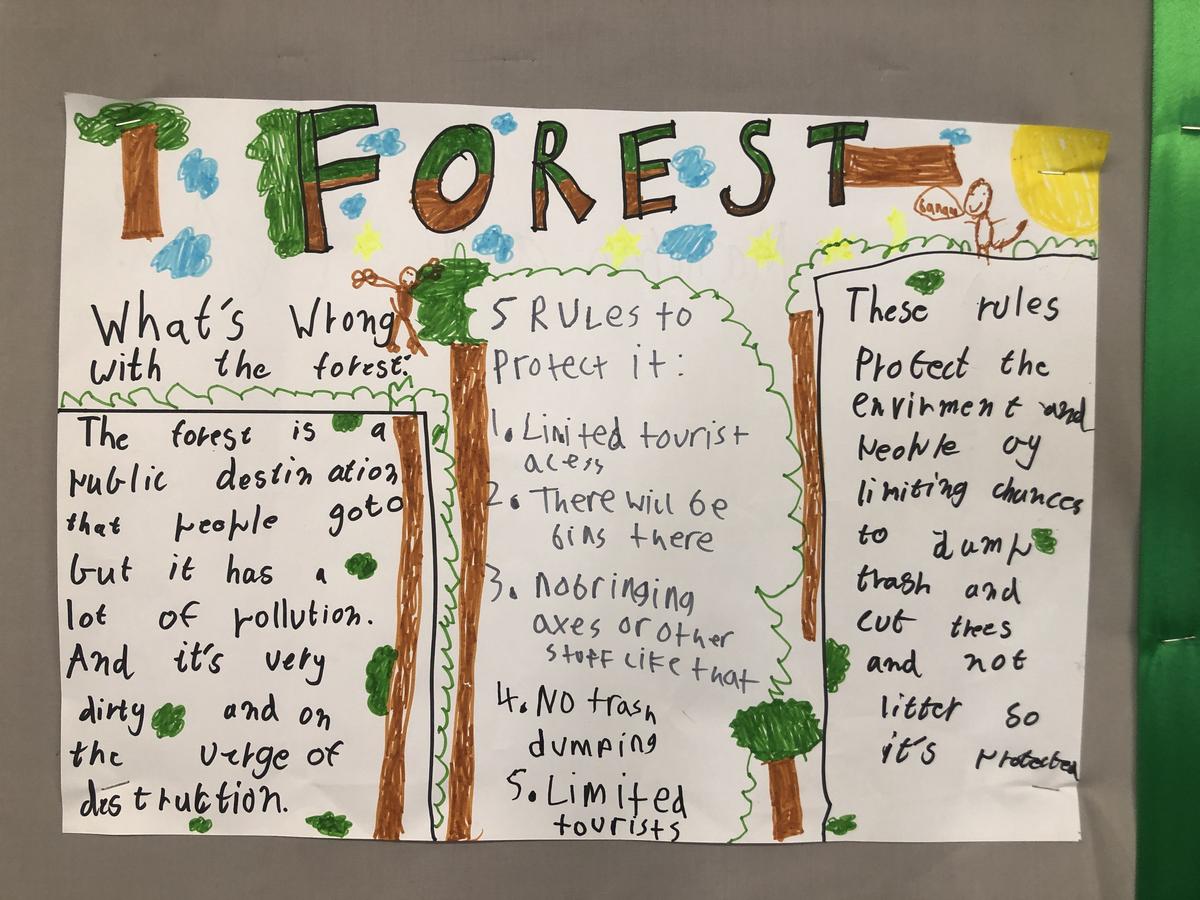 FOREST
banana
What's Wrong
with the forest:
The forest is a
public destination
that people goto
but it has a
lot of pollution.
And it's very
dirty and on
the verge of
destruction.
5 RULes to
Protect it:
1. Limited tourist
acess
2. There will be
bins there
3. nobringing
axes or other
stuff like that
4. NO trash
dumping
5. Limited
tourists
These rules
Protect the
envirment and
people by
limiting chances
to dump
trash and
cut trees
and not
litter so
it's protected